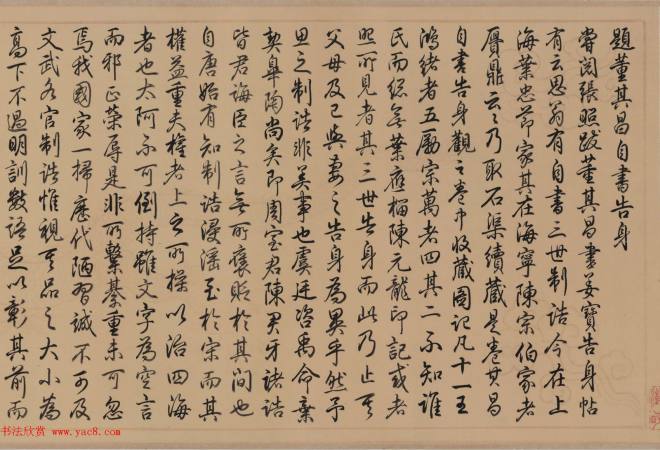 題董其昌自書告身
嘗閱張照跋董其昌書姜寶告身帖
有云思翁有自書三世制誥今在上
海葉忠節家其在海寧陳宗伯家者
贗鼎云云乃取石渠續藏是卷其昌
自書告身觀之卷中收藏圖記凡十一五
鴻緒者五勵宗萬者四其二不知誰
氏而總無葉應榴陳元龍印記或者
照所見者其三世告身而此乃止其
父母及己與妻之告身為異乎然予
思之制誥非美事也虞廷咨禹命棄
契皋陶尚矣即周室君陳君牙諸誥
皆君誨臣之言無所褒貶於其間也
自唐始有知制誥浸淫至於宋而其
權益重夫權者上之所操以治四海
者也太阿不可倒持雖文字為空言
而邪正榮辱是非所繫綦重未可忽
焉我國家一掃歷代陋習誠不可及
文武各官制誥惟視其品之大小為
高下不過明訓數語足以彰其前而
书法欣赏 www.yac8.com